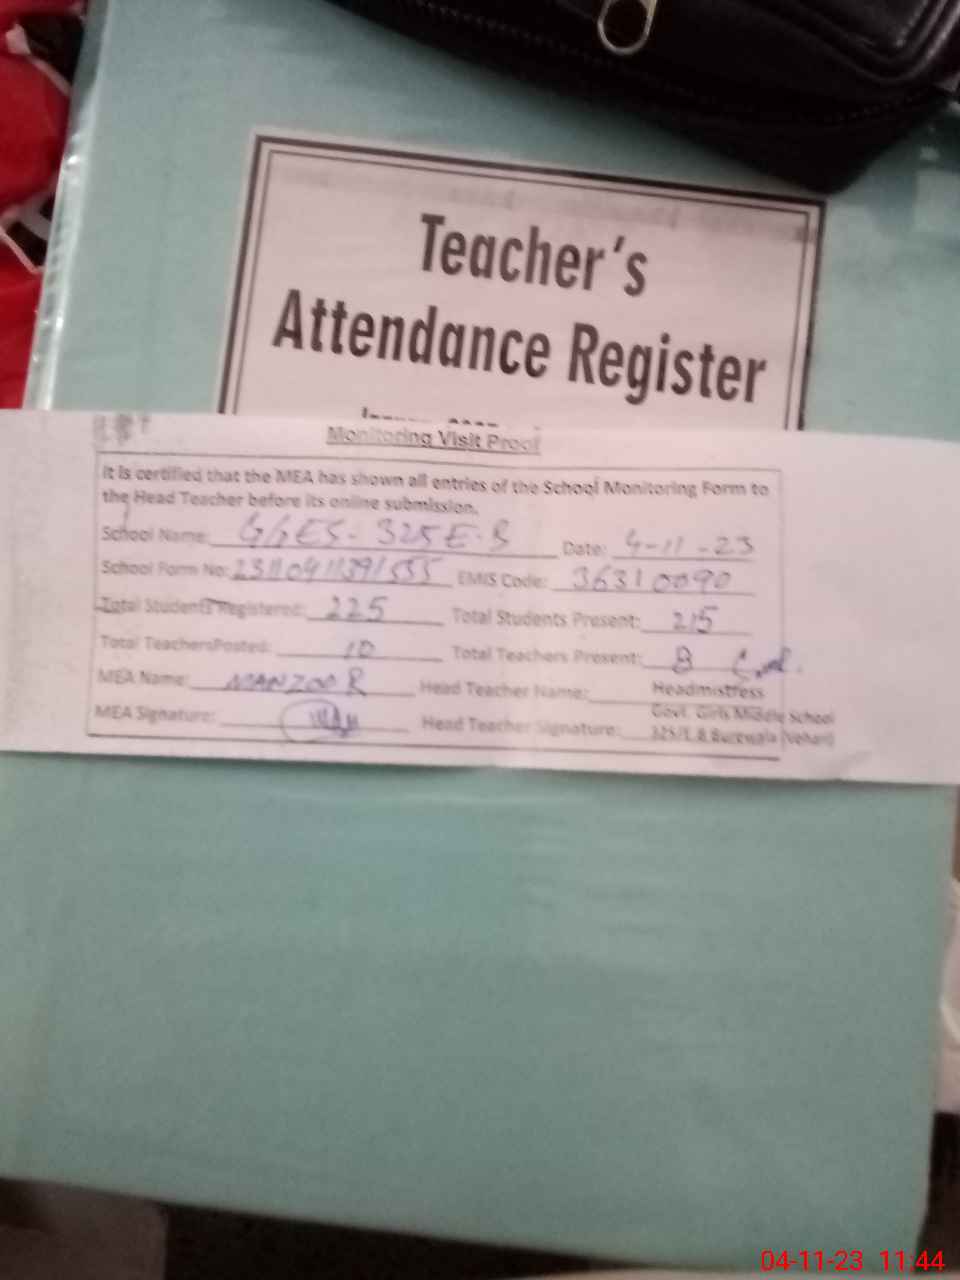 Teacher's
Attendance Register
Monitoring Visit Proof
It is certified that the MEA has shown all entries of the School Monitoring Form to
the Head Teacher before its online submission.
School Name: GGES- 325 E.B Date: 4-11-23
School Form No: EMIS Code: 36310090
Total Students Registered: 225 Total Students Present: 215
Total TeachersPosted: 10 Total Teachers Present: 8
MEA Name: MANZOOR Head Teacher Name: Headmistress
Govt. Girls Middle School
MEA Signature: Head Teacher Signature: 325/E.B Burewala (Vehari)
04-11-23 11:44